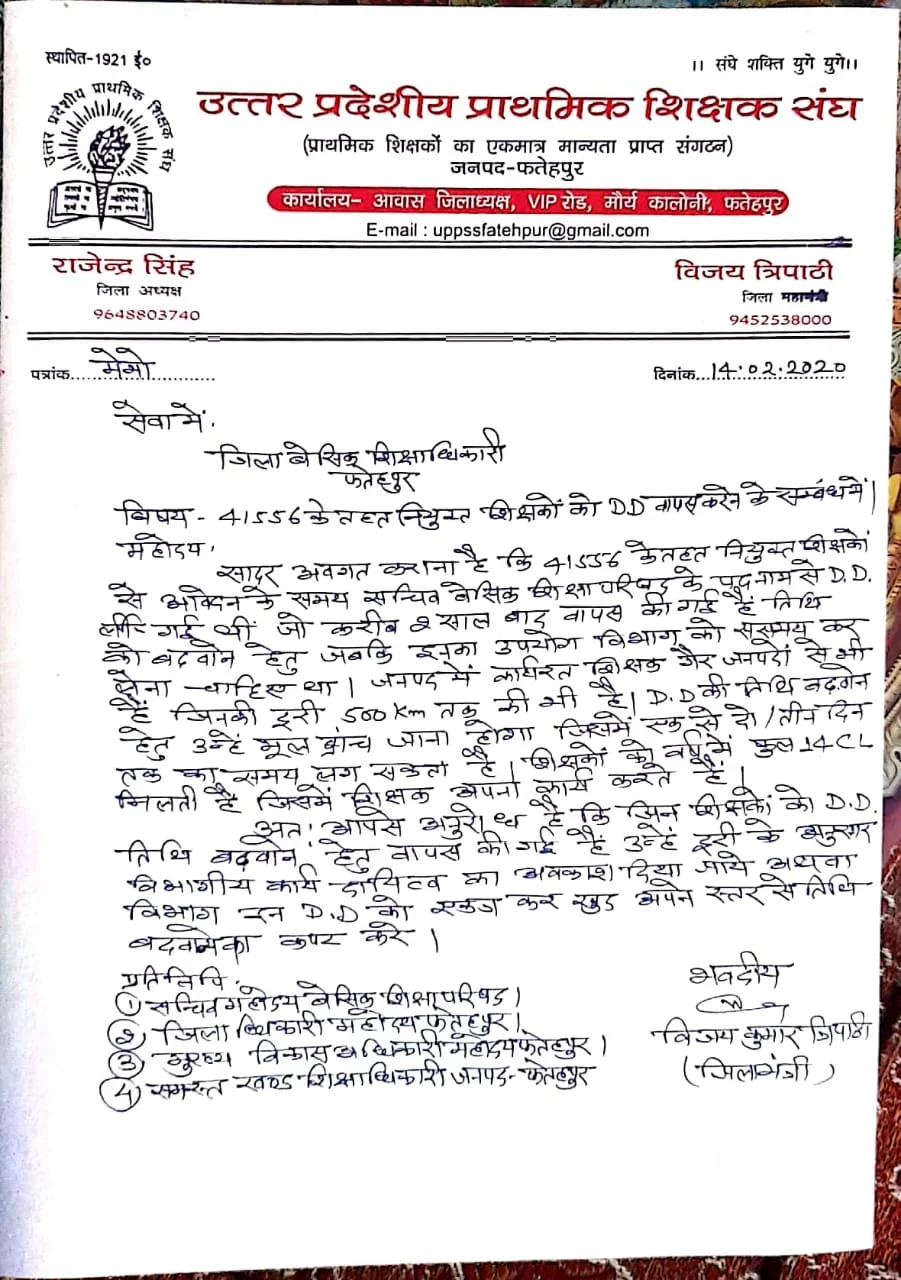 स्थापित-1921 ई०
।। संघे शक्ति युगे युगे।।
उत्तर प्रदेशीय प्राथमिक शिक्षक संघ
उत्तर प्रदेशीय प्राथमिक शिक्षक संघ
(प्राथमिक शिक्षकों का एकमात्र मान्यता प्राप्त संगठन)
जनपद-फतेहपुर
कार्यालय- आवास जिलाध्यक्ष, VIP रोड, मौर्य कालोनी, फतेहपुर
E-mail : uppssfatehpur@gmail.com
राजेन्द्र सिंह
जिला अध्यक्ष
9648803740
विजय त्रिपाठी
जिला महामंत्री
9452538000
पत्रांक...मेमो............
दिनांक...14.02.2020
सेवा में,
जिला बेसिक शिक्षाधिकारी
फतेहपुर
विषय - 41556 के तहत नियुक्त शिक्षकों को DD वापस करने के सम्बंध में।
महोदय,
सादर अवगत कराना है कि 41556 के तहत नियुक्त शिक्षकों
से आवेदन के समय सचिव बेसिक शिक्षा परिषद के पदनाम से D.D.
ली गई थीं जो करीब 2 साल बाद वापस की गई हैं तिथि
को बढ़वाने हेतु जबकि इनका उपयोग विभाग को ससमय कर
लेना चाहिए था। जनपद में कार्यरत शिक्षक गैर जनपदों से भी
हैं जिनकी दूरी 500 Km तक की भी है। D.D की तिथि बढ़वाने
हेतु उन्हें मूल ब्रांच जाना होगा जिसमें एक से दो / तीन दिन
तक का समय लग सकता है। शिक्षकों को वर्ष में कुल 14 CL
मिलती हैं जिसमें शिक्षक अपना कार्य करते हैं।
अतः आपसे अनुरोध है कि जिन शिक्षकों को D.D.
तिथि बढ़वाने हेतु वापस की गई हैं उन्हें दूरी के अनुसार
विभागीय कार्य दायित्व का अवकाश दिया जाये अथवा
विभाग इन D.D को एकत्र कर खुद अपने स्तर से तिथि
बढ़वाने का कष्ट करे।
प्रतिलिपि-
① सचिव महोदय बेसिक शिक्षा परिषद।
② जिलाधिकारी महोदय फतेहपुर।
③ मुख्य विकास अधिकारी महोदय फतेहपुर।
④ समस्त खण्ड शिक्षाधिकारी जनपद- फतेहपुर
भवदीय
विजय कुमार त्रिपाठी
(जिलामंत्री)